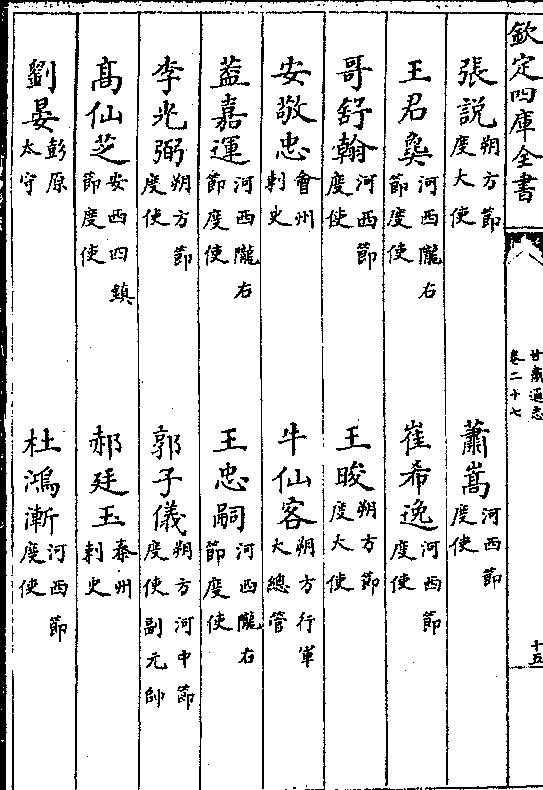 欽定四庫全書
甘肅通志
卷二十七
十五
張說 朔方節度大使
蕭嵩 河西節度使
王君㚟 河西隴右節度使
崔希逸 河西節度使
哥舒翰 河西節度使
王晙 朔方節度大使
安敬忠 會州刺史
牛仙客 朔方行軍大總管
葢嘉運 河西隴右節度使
王忠嗣 河西隴右節度使
李光弼 朔方節度使
郭子儀 朔方河中節度使副元帥
高仙芝 安西四鎮節度使
郝廷玉 秦州刺史
劉晏 彭原太守
杜鴻漸 河西節度使